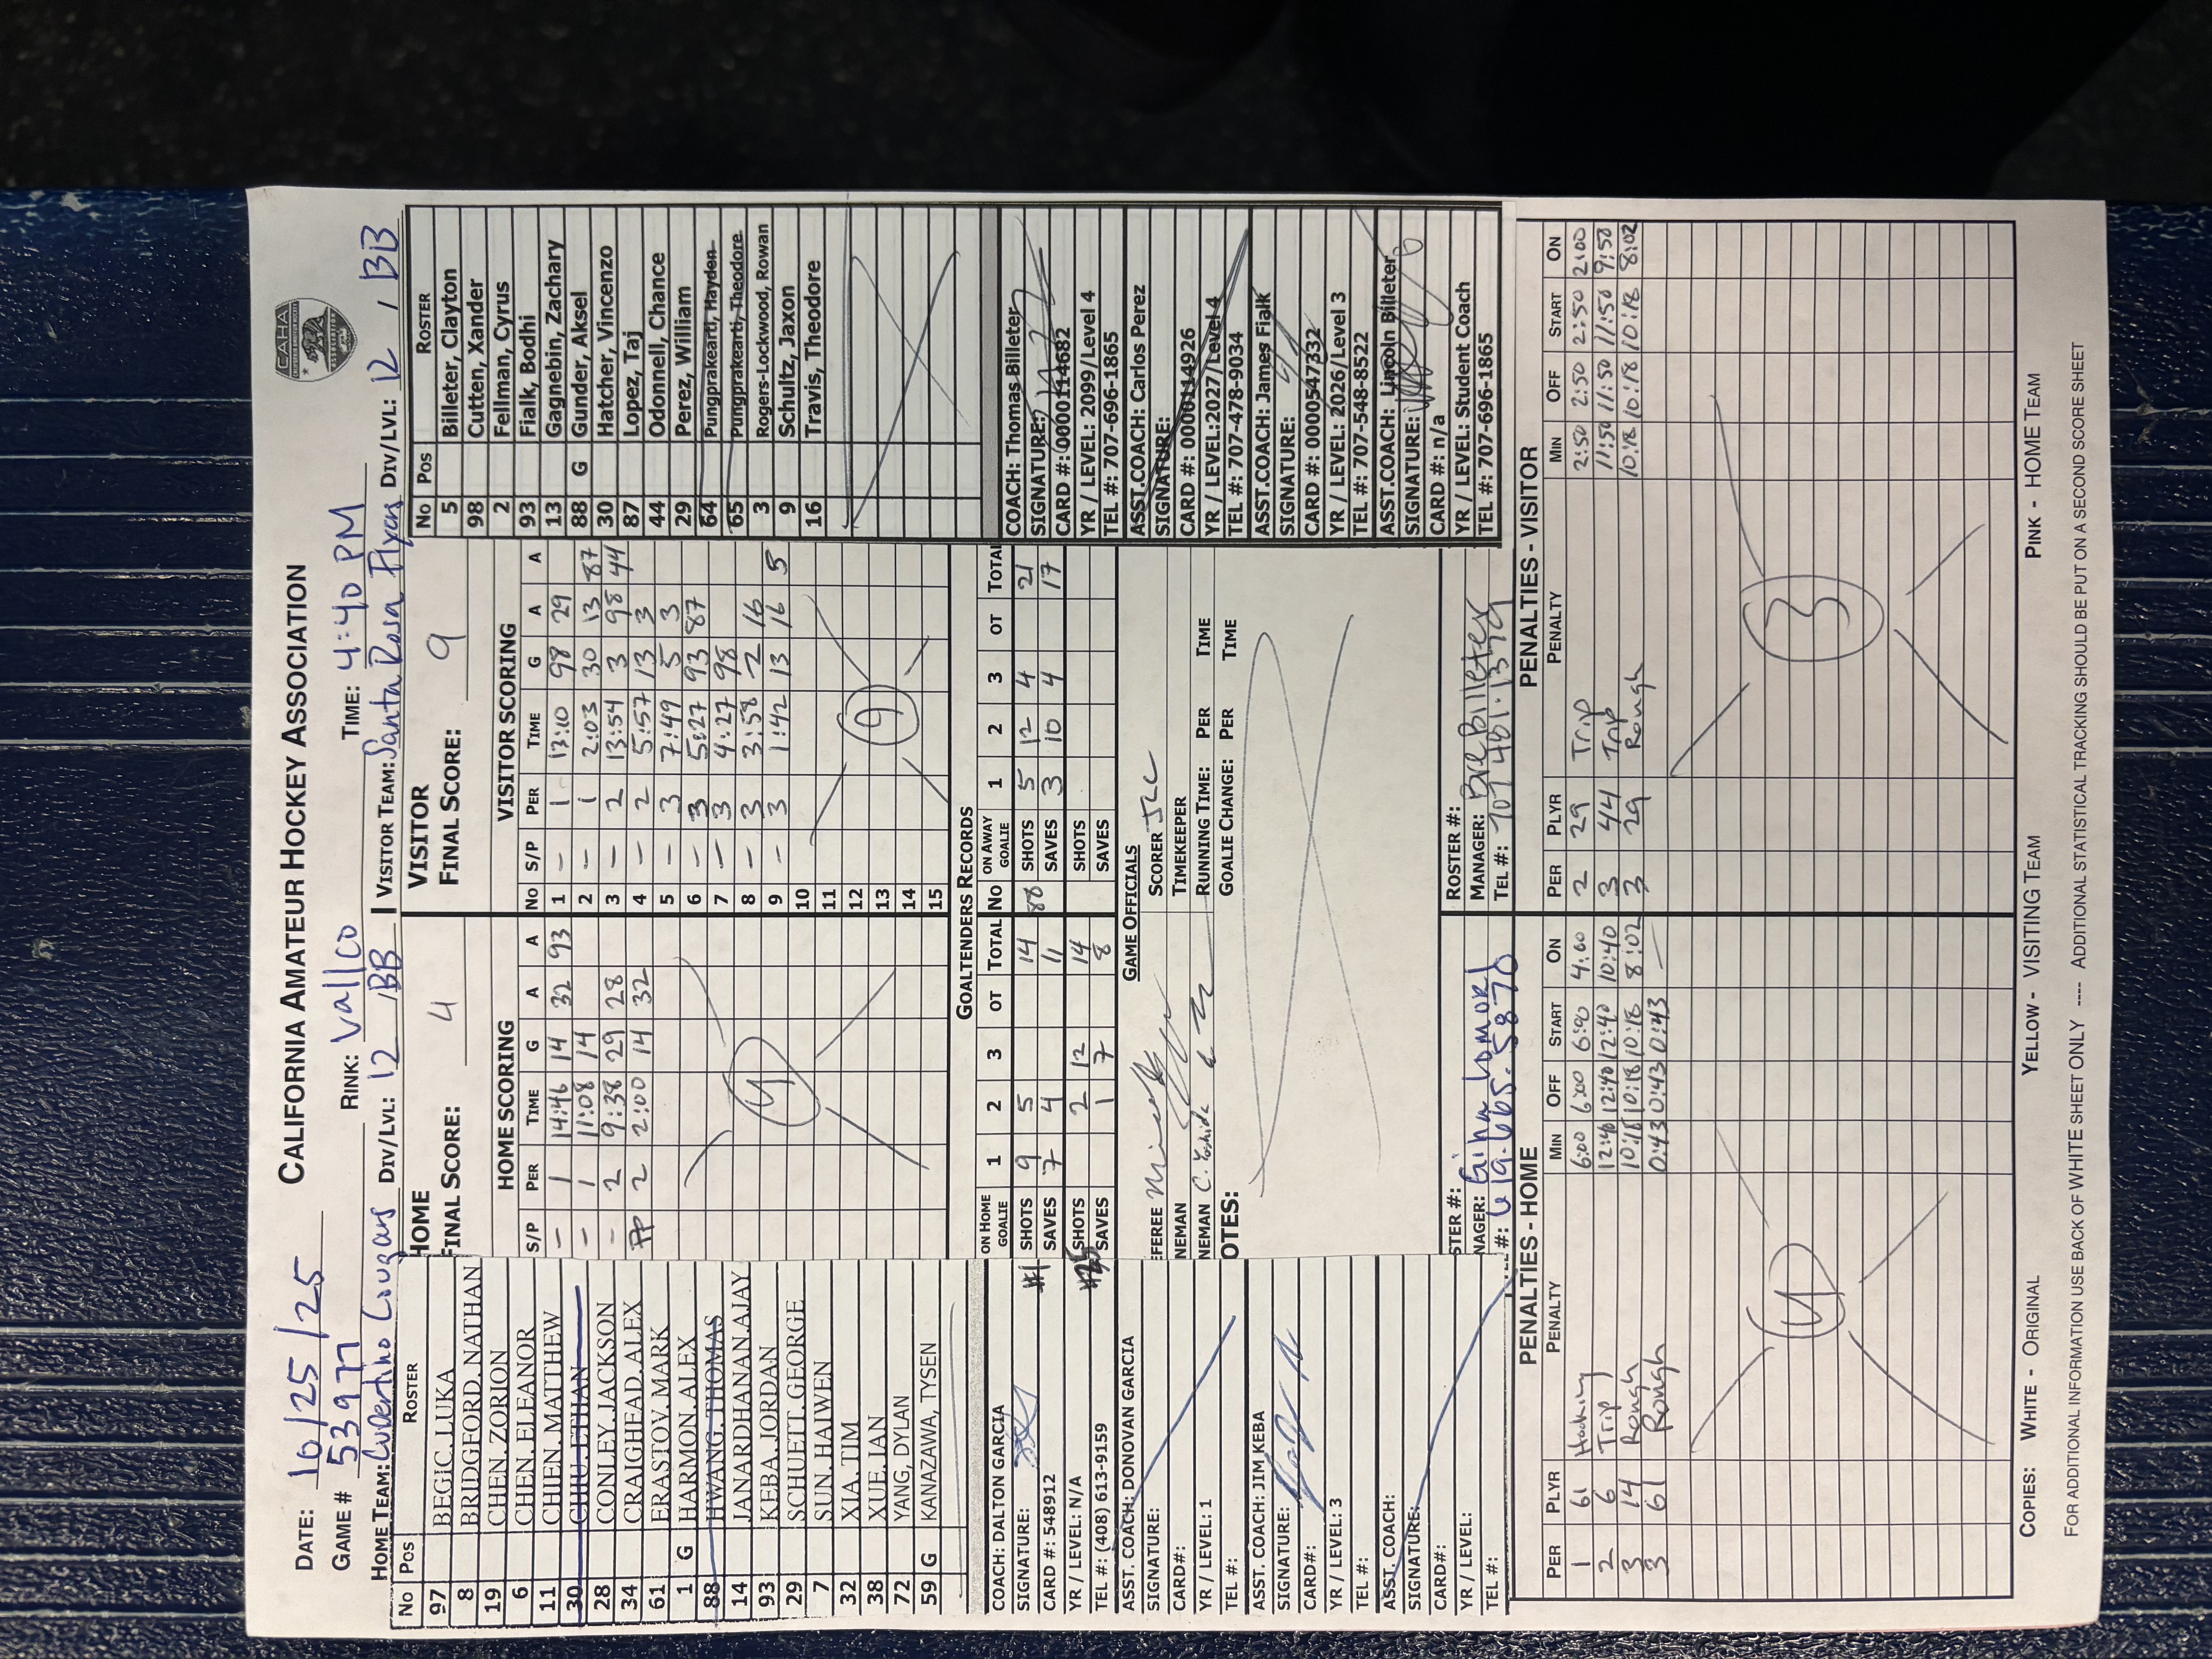 CALIFORNIA AMATEUR HOCKEY ASSOCIATION
CAHA
DATE: 10/25/25
GAME # 53977 RINK: Vallco TIME: 4:40 PM
HOME TEAM: Cupertino Cougars DIV/LVL: 12 / BB VISITOR TEAM: Santa Rosa Flyers DIV/LVL: 12 / BB
No Pos ROSTER
97 BEGIC, LUKA
8 BRIDGEFORD, NATHAN
19 CHEN, ZORION
6 CHEN, ELEANOR
11 CHIEN, MATTHEW
30 CHIU, ETHAN
28 CONLEY, JACKSON
34 CRAIGHEAD, ALEX
61 ERASTOV, MARK
1 G HARMON, ALEX
88 HWANG, THOMAS
14 JANARDHANAN, AJAY
93 KEBA, JORDAN
29 SCHUETT, GEORGE
7 SUN, HAIWEN
32 XIA, TIM
38 XUE, IAN
72 YANG, DYLAN
59 G KANAZAWA, TYSEN
HOME
FINAL SCORE: 4
HOME SCORING
S/P PER TIME G A A
- 1 14:46 14 32 93
- 1 11:08 14
- 2 9:38 29 28
PP 2 2:00 14 32
4
VISITOR
FINAL SCORE: 9
VISITOR SCORING
No S/P PER TIME G A A
1 - 1 13:10 98 29
2 - 1 2:03 30 13 87
3 - 2 13:54 3 98 44
4 - 2 5:57 13 3
5 - 3 7:49 5 3
6 - 3 5:27 93 87
7 - 3 4:27 98
8 - 3 3:58 2 16
9 - 3 1:42 13 16 5
10
11
12
13
14
15
9
No Pos ROSTER
5 Billeter, Clayton
98 Cutten, Xander
2 Fellman, Cyrus
93 Fialk, Bodhi
13 Gagnebin, Zachary
88 G Gunder, Aksel
30 Hatcher, Vincenzo
87 Lopez, Taj
44 Odonnell, Chance
29 Perez, William
64 Pungprakearti, Hayden
65 Pungprakearti, Theodore
3 Rogers-Lockwood, Rowan
9 Schultz, Jaxon
16 Travis, Theodore
GOALTENDERS RECORDS
ON HOME GOALIE 1 2 3 OT TOTAL No ON AWAY GOALIE 1 2 3 OT TOTAL
#1 SHOTS 9 5 14 88 SHOTS 5 12 4 21
SAVES 7 4 11 SAVES 3 10 4 17
SHOTS 2 12 14 SHOTS
SAVES 1 7 8 SAVES
COACH: DALTON GARCIA
SIGNATURE:
CARD #: 548912
YR / LEVEL: N/A
TEL #: (408) 613-9159
ASST. COACH: DONOVAN GARCIA
SIGNATURE:
CARD#:
YR / LEVEL: 1
TEL #:
ASST. COACH: JIM KEBA
SIGNATURE:
CARD#:
YR / LEVEL: 3
TEL #:
ASST. COACH:
SIGNATURE:
CARD#:
YR / LEVEL:
TEL #:
GAME OFFICIALS
FEREE SCORER
NEMAN TIMEKEEPER
NEMAN C. Yoshida RUNNING TIME: PER TIME
OTES: GOALIE CHANGE: PER TIME
STER #: ROSTER #:
NAGER: Gina Lomori MANAGER: Bree Billeter
#: 619.665.5870 TEL #: 707 401.1379
COACH: Thomas Billeter
SIGNATURE:
CARD #: 000114682
YR / LEVEL: 2099/Level 4
TEL #: 707-696-1865
ASST.COACH: Carlos Perez
SIGNATURE:
CARD #: 000114926
YR / LEVEL:2027/Level 4
TEL #: 707-478-9034
ASST.COACH: James Fialk
SIGNATURE:
CARD #: 0000547332
YR / LEVEL: 2026/Level 3
TEL #: 707-548-8522
ASST.COACH: Lincoln Billeter
SIGNATURE:
CARD #: n/a
YR / LEVEL: Student Coach
TEL #: 707-696-1865
PENALTIES - HOME
PER PLYR PENALTY MIN OFF START ON
1 61 Hooking 6:00 6:00 6:00 4:00
2 6 Trip 12:40 12:40 12:40 10:40
3 14 Rough 10:18 10:18 10:18 8:02
3 61 Rough 0:43 0:43 0:43 —
4
PENALTIES - VISITOR
PER PLYR PENALTY MIN OFF START ON
2 29 Trip 2:50 2:50 2:50 2:00
3 44 Trip 11:50 11:50 11:50 9:50
3 29 Rough 10:18 10:18 10:18 8:02
3
COPIES: WHITE - ORIGINAL YELLOW - VISITING TEAM PINK - HOME TEAM
FOR ADDITIONAL INFORMATION USE BACK OF WHITE SHEET ONLY ---- ADDITIONAL STATISTICAL TRACKING SHOULD BE PUT ON A SECOND SCORE SHEET